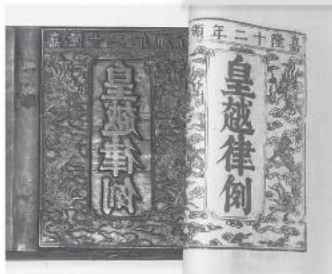 嘉隆十二年頒
皇越律例
皇越律例